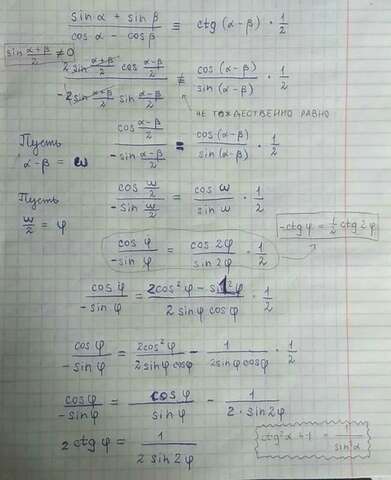 sinα + sinβ / cosα - cosβ ≡ ctg (α-β) · 1/2
sin α+β/2 ≠ 0
2 sin α+β/2 cos α-β/2 / -2 sin α+β/2 sin α-β/2 ≢ cos (α-β) / sin (α-β) · 1/2
НЕ ТОЖДЕСТВЕННО РАВНО
Пусть
α-β = ω
cos α-β/2 / -sin α-β/2 = cos(α-β) / sin(α-β) · 1/2
Пусть
ω/2 = φ
cos ω/2 / -sin ω/2 = cos ω / sin ω · 1/2
cos φ / -sin φ = cos 2φ / sin 2φ · 1/2
-ctg φ = 1/2 ctg 2φ
cos φ / -sin φ = 2cos²φ - 1 / 2 sinφ cosφ · 1/2
cosφ / -sinφ = 2cos²φ / 2sinφ cosφ - 1 / 2sinφ cosφ · 1/2
cosφ / -sinφ = cosφ / sinφ - 1 / 2 · sin 2φ
2 ctg φ = 1 / 2 sin 2φ
ctg²α + 1 = 1 / sin α